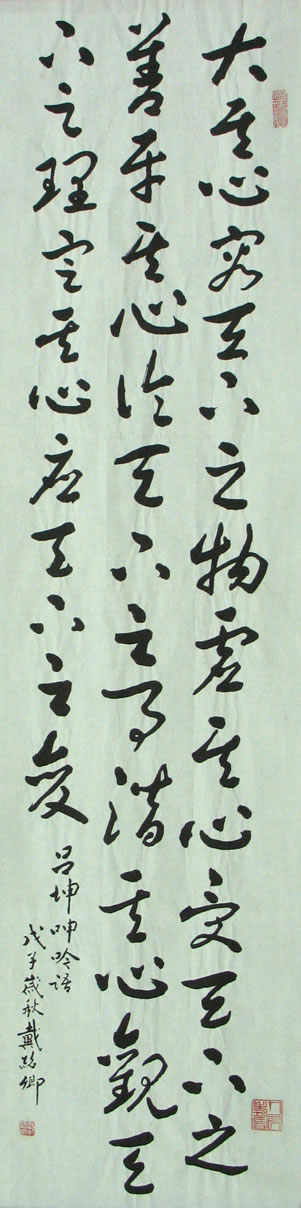 大其心容天下之物虚其心受天下之
善平其心论天下之事潜其心觀天
下之理定其心应天下之变
吕坤呻吟语
戊子岁秋戴绍卿